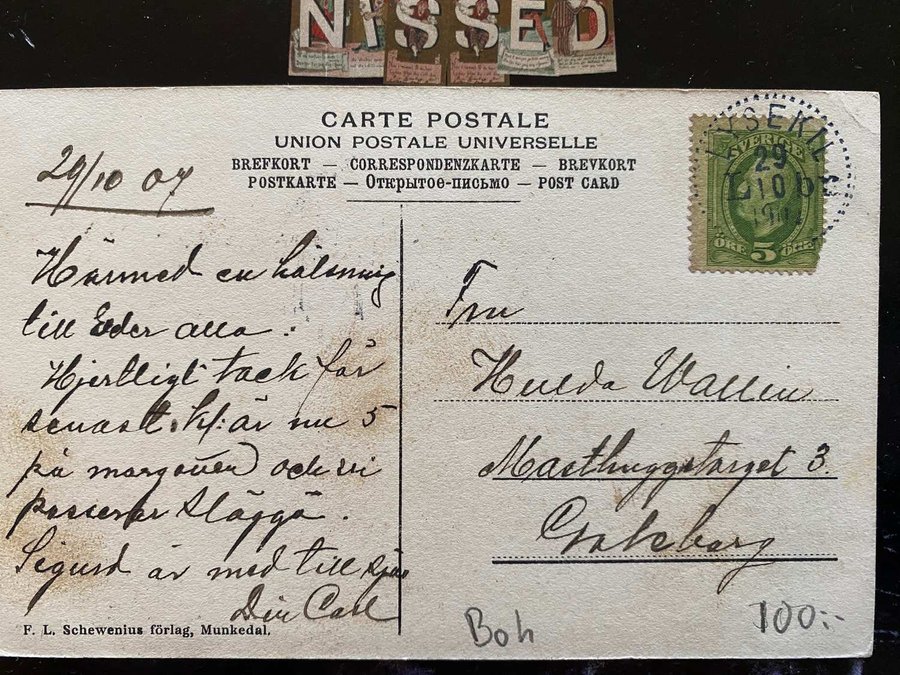 NISSED
CARTE POSTALE
UNION POSTALE UNIVERSELLE
BREFKORT — CORRESPONDENZKARTE — BREVKORT
POSTKARTE — Открытое-письмо — POST CARD
29/10 07
Härmed en hälsning
till Eder alla:
Hjertligt tack för
senast. Kl: är nu 5
på morgonen och vi
passerar Släggö.
Sigurd är med till sjös
Din Carl
F. L. Schewenius förlag, Munkedal.
LYSEKIL
29
10
SVERIGE
ÖRE 5 ÖRE
Fru
Hulda Wallin
Masthuggstorget 3.
Göteborg
Boh
100:-